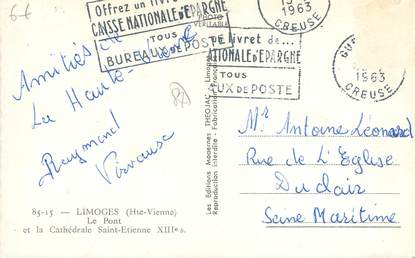 6-6
Offrez un livret de...
CAISSE NATIONALE D'EPARGNE
TOUS
BUREAUX DE POSTE
PHOTO
VERITABLE
1963
CREUSE
livret de...
NATIONALE D'EPARGNE
TOUS
AUX DE POSTE
GUE
1963
CREUSE
Amitiés de
La Haute-
Raymond
85-15 — LIMOGES (Hte-Vienne)
Le Pont
et la Cathédrale Saint-Etienne XIIIe s.
Les Editions Modernes THEOJAC - Limoges
Reproduction interdite - Fabrication Française
Mr Antoine Léonard
Rue de L'Eglise
Duclair
Seine Maritime